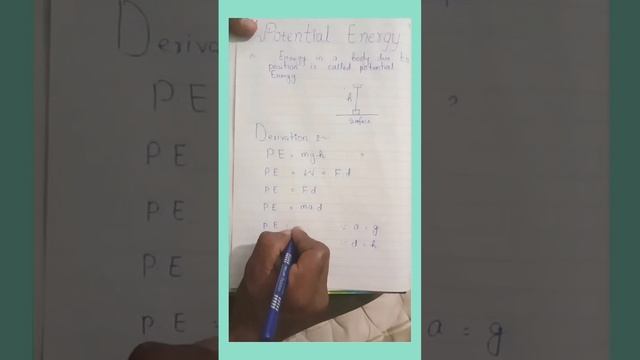 Potential Energy
Energy in a body due to
position is called potential
Energy
h
Surface
Derivation :-
PE = mgh =
PE = W = Fd
PE = Fd
PE = mad
PE
∵ a = g
∴ d = h